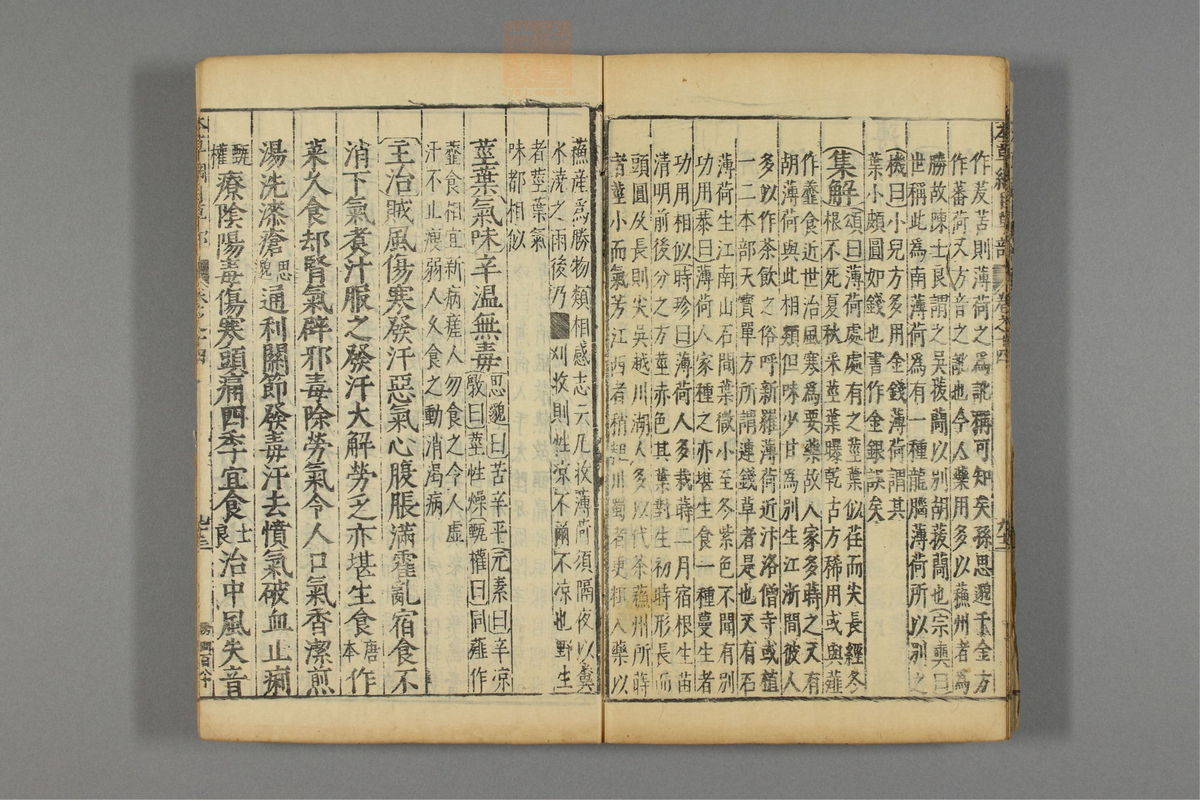 作茇苦則薄荷之為訛稱可知矣孫思邈千金方
作蕃荷又方音之訛也今人藥用多以蘓州者為
勝故陳士良謂之吳菝蕳以别胡菝蕳也宗奭曰
世稱此為南薄荷為有一種龍腦薄荷所以别之
機曰小兒方多用金錢薄荷謂其
葉小頗圓如錢也書作金銀誤矣
集解頌曰薄荷處處有之莖葉似荏而尖長經冬
根不死夏秋采莖葉曝乾古方稀用或與薤
作虀食近世治風寒為要藥故人家多蒔之又有
胡薄荷與此相類但味少甘為别生江浙間彼人
多以作茶飲之俗呼新羅薄荷近汴洛僧寺或植
一二本部天寶單方所謂連錢草者是也又有石
薄荷生江南山石間葉微小至冬紫色不聞有别
功用㳟曰薄荷人家種之亦堪生食一種蔓生者
功用相似時珍曰薄荷人多栽蒔二月宿根生苗
清明前後分之方莖赤色其葉對生初時形長而
頭圓及長則尖吳越川湖人多以代茶蘓州所蒔
者莖小而氣芳江西者稍粗川蜀者更粗入藥以
蘓産爲勝物類相感志云凡收薄荷須隔夜以糞
水澆之雨後乃刈收則性凉不爾不凉也野生
者莖葉氣
味都相似
莖葉氣味辛温無毒思邈曰苦辛平元素曰辛凉
斅曰莖性燥甄權曰同薤作
虀食相宜新病瘥人勿食之令人虚
汗不止瘦弱人久食之動消渴病
主治賊風傷寒發汗惡氣心腹脹滿霍亂宿食不
消下氣煮汁服之發汗大解勞乏亦堪生食唐本作
菜久食却腎氣辟邪毒除勞氣令人口氣香潔煎
湯洗漆瘡思邈通利關節發毒汗去憤氣破血止痢
甄權療陰陽毒傷寒頭痛四季宜食士良治中風失音